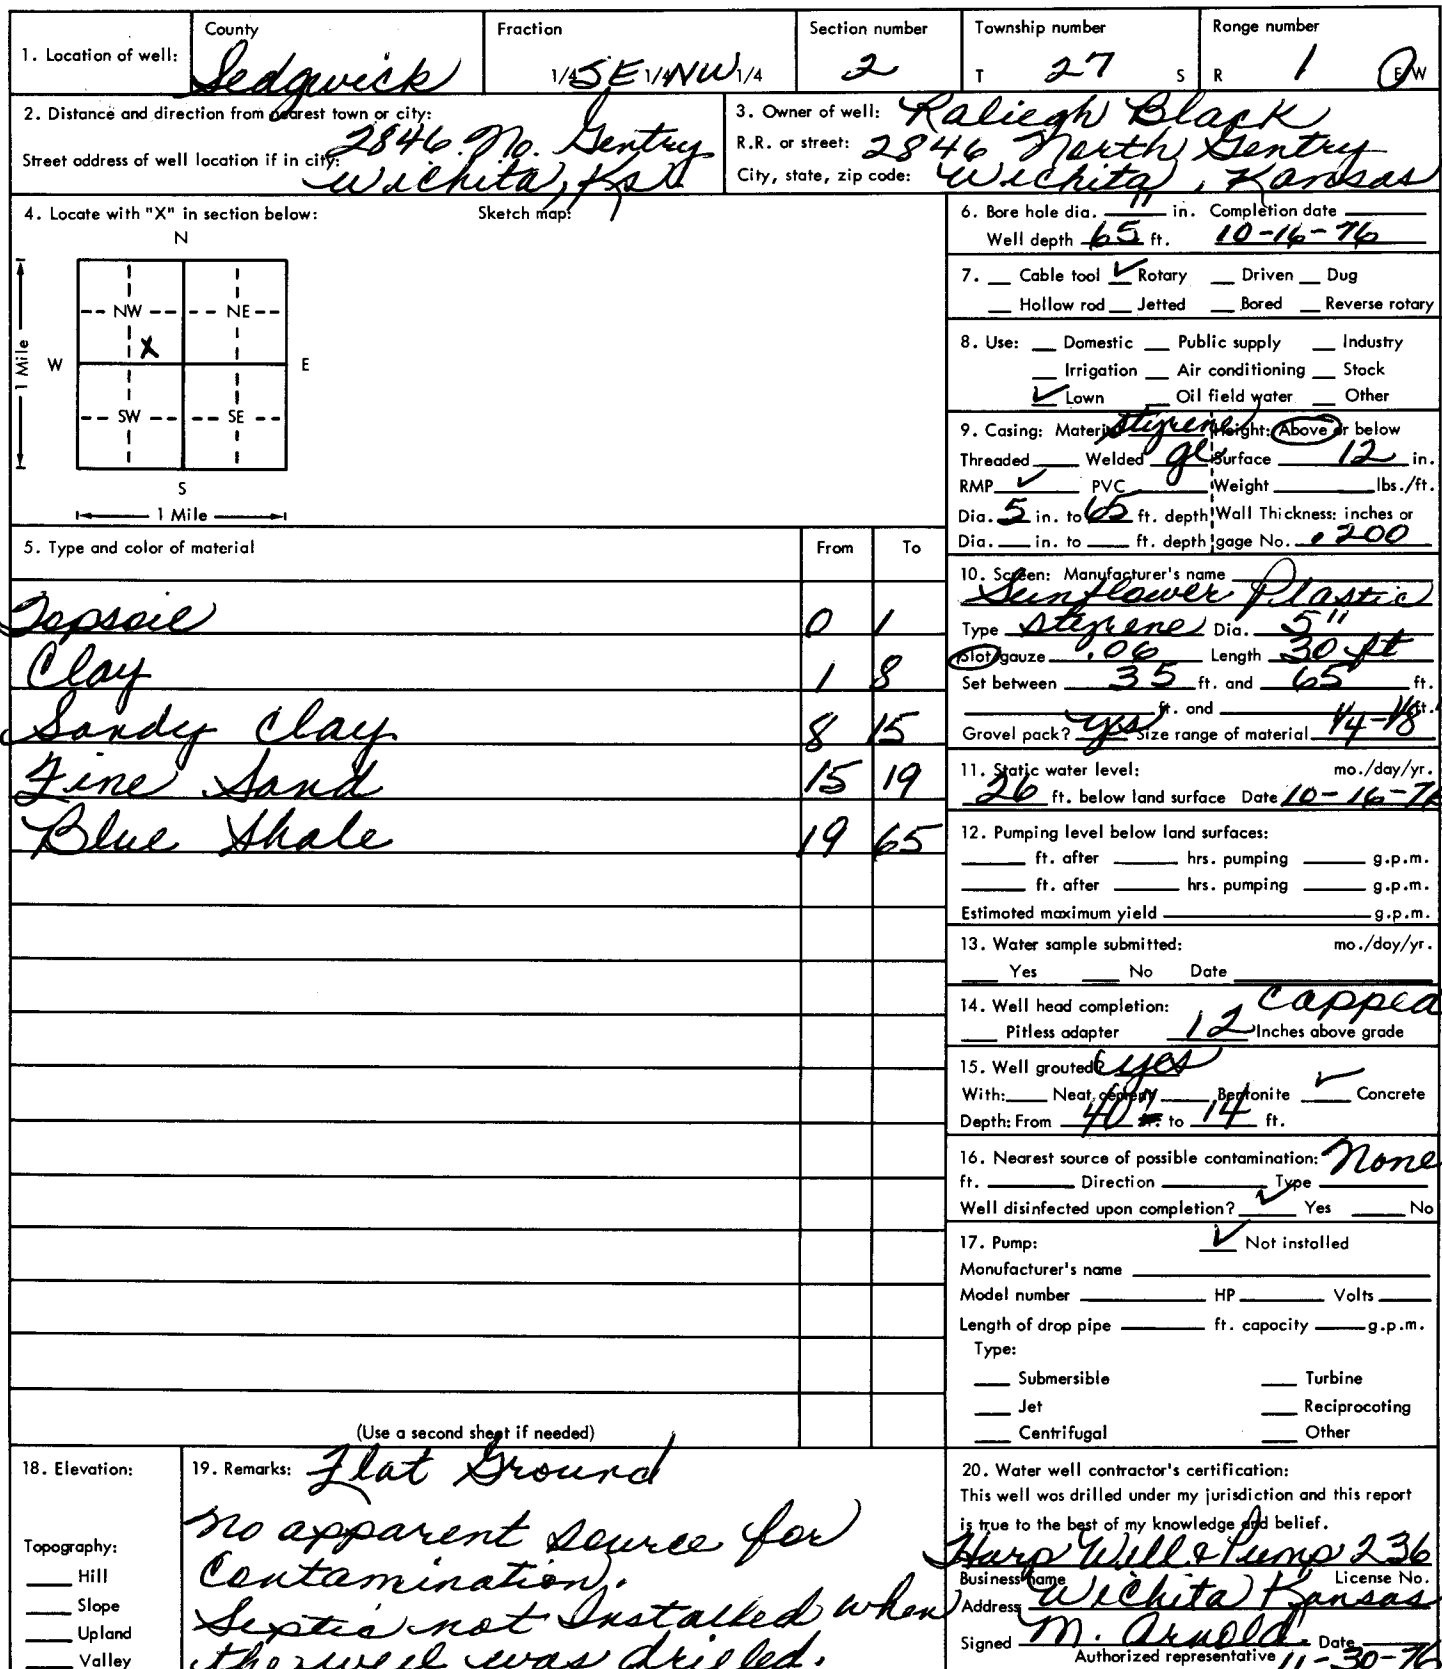 County Fraction Section number Township number Range number
1. Location of well: Sedgwick 1/4 SE 1/4 NW 1/4 2 T 27 S R 1 E/W
2. Distance and direction from nearest town or city: 2846 No. Gentry
Street address of well location if in city: Wichita, Ks.
3. Owner of well: Raliegh Black
R.R. or street: 2846 North Gentry
City, state, zip code: Wichita, Kansas
4. Locate with "X" in section below: Sketch map:
N
NW NE
X
W E
1 Mile
SW SE
S
1 Mile
5. Type and color of material From To
Topsoil 0 1
Clay 1 8
Sandy Clay 8 15
Fine Sand 15 19
Blue Shale 19 65
(Use a second sheet if needed)
6. Bore hole dia. 11 in. Completion date
Well depth 65 ft. 10-16-76
7. Cable tool ✓ Rotary Driven Dug
Hollow rod Jetted Bored Reverse rotary
8. Use: Domestic Public supply Industry
Irrigation Air conditioning Stock
✓ Lawn Oil field water Other
9. Casing: Material styrene Height: Above or below
Threaded Welded gl. Surface 12 in.
RMP ✓ PVC Weight lbs./ft.
Dia. 5 in. to 65 ft. depth Wall Thickness: inches or
Dia. in. to ft. depth gage No. .200
10. Screen: Manufacturer's name
Sunflower Plastic
Type styrene Dia. 5"
Slot/gauze .06 Length 30 ft
Set between 35 ft. and 65 ft.
ft. and ft.
Gravel pack? yes Size range of material 1/4-1/8
11. Static water level: mo./day/yr.
26 ft. below land surface Date 10-16-76
12. Pumping level below land surfaces:
ft. after hrs. pumping g.p.m.
ft. after hrs. pumping g.p.m.
Estimated maximum yield g.p.m.
13. Water sample submitted: mo./day/yr.
Yes No Date
14. Well head completion: capped
Pitless adapter 12 Inches above grade
15. Well grouted? yes
With: Neat cement Bentonite ✓ Concrete
Depth: From 40" ft. to 14 ft.
16. Nearest source of possible contamination: None
ft. Direction Type
Well disinfected upon completion? ✓ Yes No
17. Pump: ✓ Not installed
Manufacturer's name
Model number HP Volts
Length of drop pipe ft. capacity g.p.m.
Type:
Submersible Turbine
Jet Reciprocating
Centrifugal Other
18. Elevation:
Topography:
Hill
Slope
Upland
Valley
19. Remarks: Flat Ground
No apparent source for
Contamination.
Septic not Installed when
the well was drilled.
20. Water well contractor's certification:
This well was drilled under my jurisdiction and this report
is true to the best of my knowledge and belief.
Harp Well & Pump 236
Business name License No.
Address Wichita Kansas
Signed M. Arnold Date
Authorized representative 11-30-76